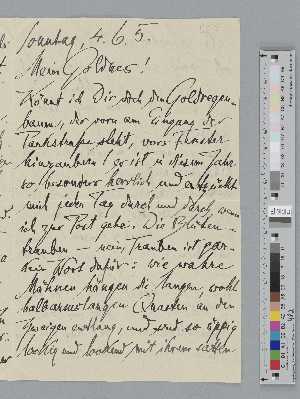 Sonntag, 4. 6. 5.
Mein Goldnes!
Könnt ich Dir doch den Goldregen-
baum, der vorn am Eingang der
Parkstraße steht, vors Fenster
hinzaubern! Er ist in diesem Jahr
so besonders herrlich und entzückt
mich jeden Tag durch und durch, wenn
ich zur Post gehe. Die Blüten-
trauben – nein, Trauben ist gar
kein Wort dafür: wie wahre
Mähnen hängen die langen, wohl
halbarmslangen Quasten an den
Zweigen entlang, und sind so üppig
lockig und lockend mit ihrem zarten